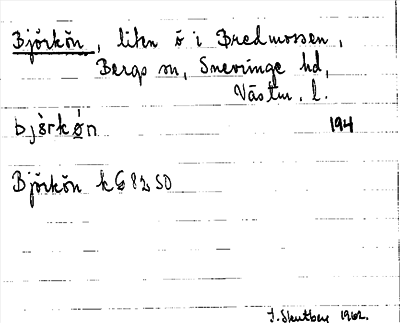 Björkön, liten ö i Bredmossen,
Bergs sn, Snevringe hd,
Västm. l.
bjə̀rkø̀n 194
Björkön k G 82 SO
J. Stutberg 1962.